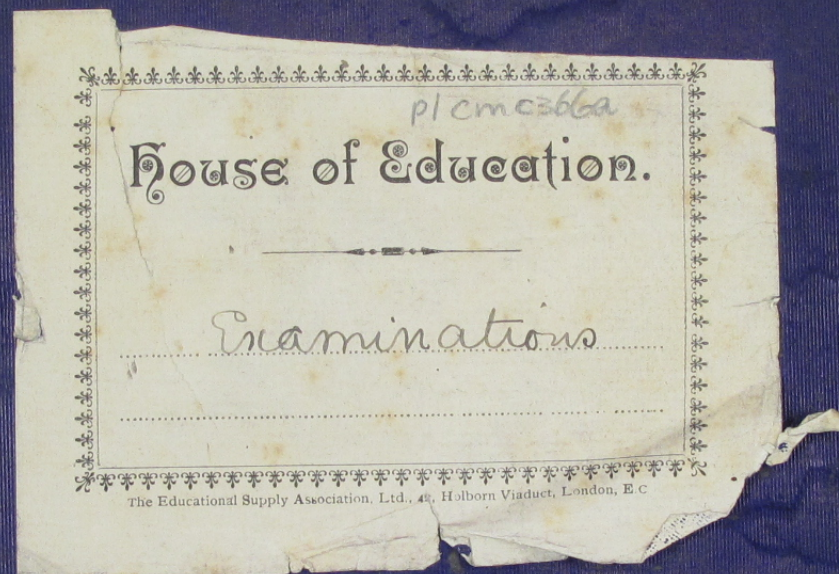 p1cmc366a
House of Education.
Examinations
The Educational Supply Association, Ltd., 42, Holborn Viaduct, London, E.C